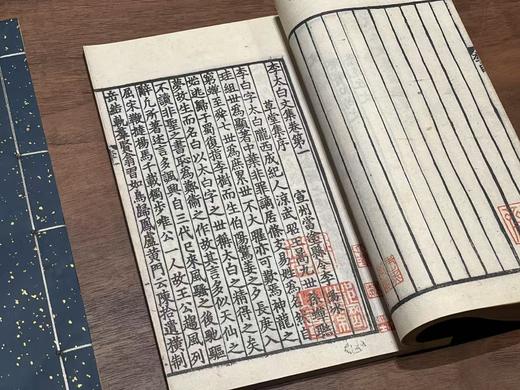 李太白文集卷第一
草堂集序
宣州當塗縣令李陽冰
李白字太白隴西成紀人涼武昭王暠九世孫蟬聯
珪組世為顯著中葉非罪謫居條支易姓為名然自
窮蟬至舜七世為庶累世不大曜亦可歎焉神龍之
始逃歸于蜀復指李樹而生伯陽驚姜之夕長庚入
夢故生而名白以太白字之世稱太白之精得之矣
不讀非聖之書恥為鄭衛之作故其言多似天仙之
辭凡所著述言多諷興自三代已來風騷之後馳驅
屈宋鞭撻揚馬千載獨步唯公一人故王公趨風列
岳結軌羣賢翕習如鳥歸鳳盧黃門云陳拾遺橫制